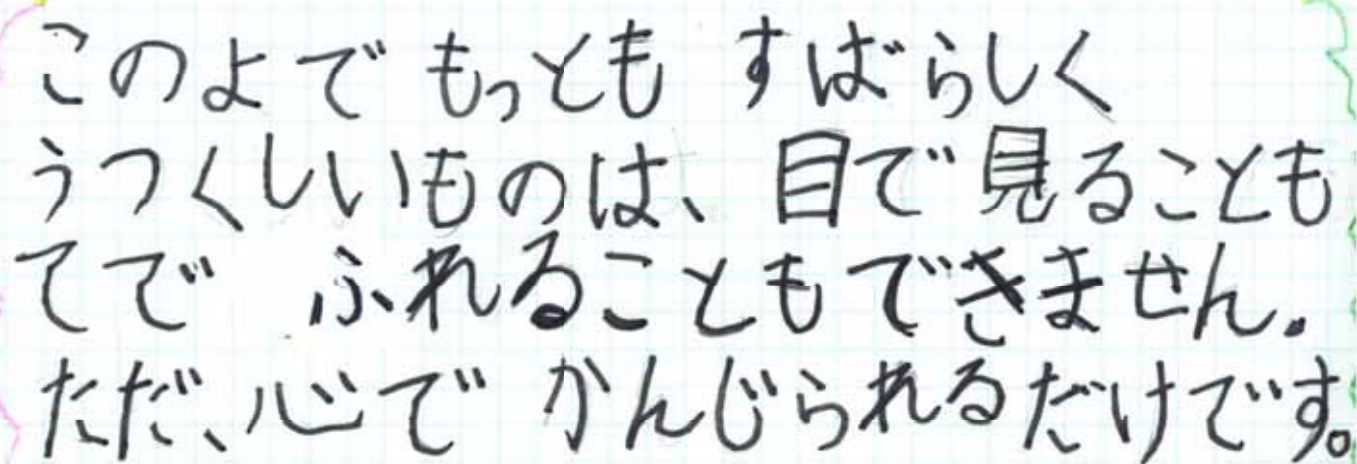 このよで もっとも すばらしく
うつくしいものは、目で見ることも
てで ふれることもできません。
ただ、心で かんじられるだけです。